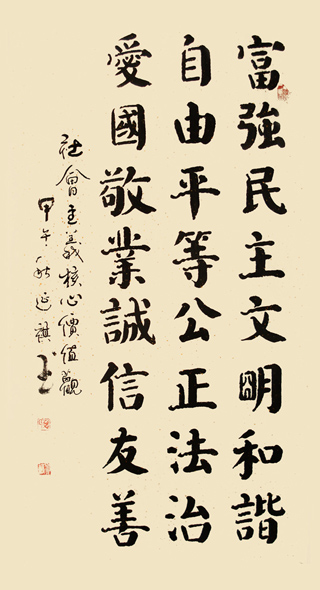 富強民主文明和諧
自由平等公正法治
愛國敬業誠信友善
社會主義核心價值觀
甲午秋延祺书